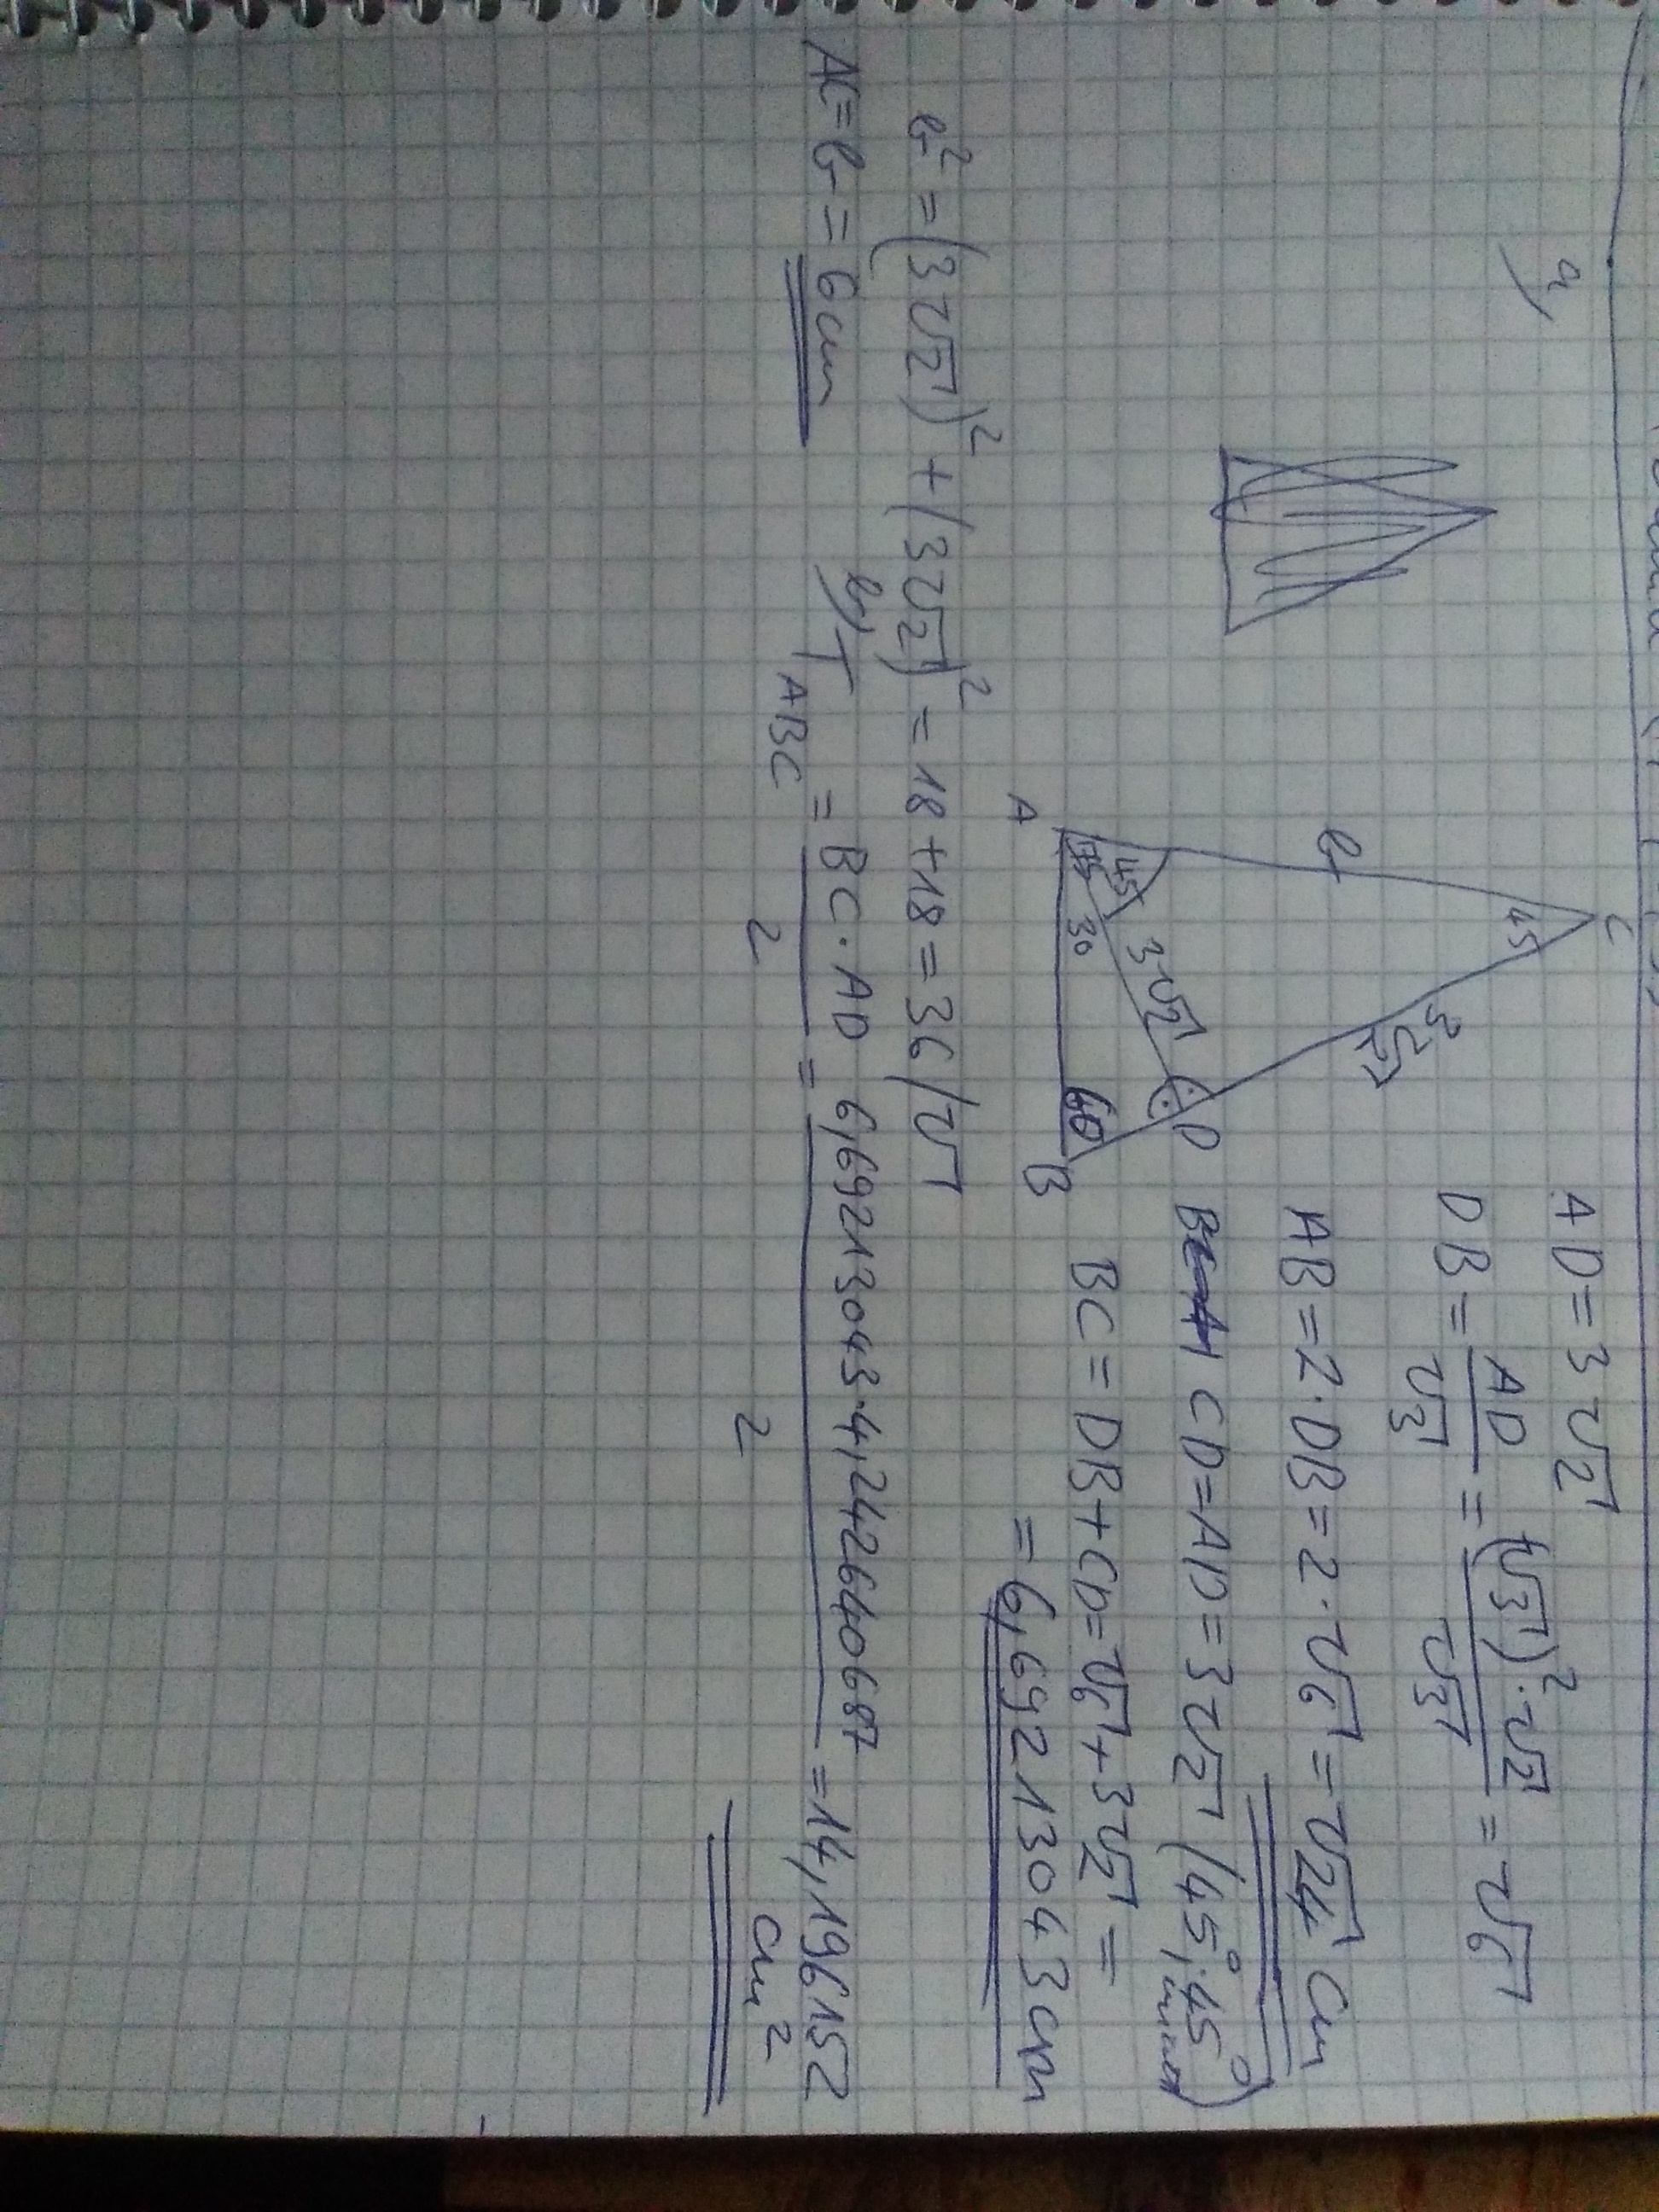 a,
AD = 3√2
DB = AD/√3 = (√3)²·√2/√3 = √6
AB = 2·DB = 2·√6 = √24 cm
CD = AD = 3√2 (45°, 45° miatt)
BC = DB + CD = √6 + 3√2 =
= 6,69213043 cm
C
45
b
3√2
D
3√2
45
75
30
60
A
B
b² = (3√2)² + (3√2)² = 18 + 18 = 36 /√
AC = b = 6 cm
b, T ABC = BC · AD / 2 = 6,69213043·4,242640687 / 2 = 14,196152 cm²